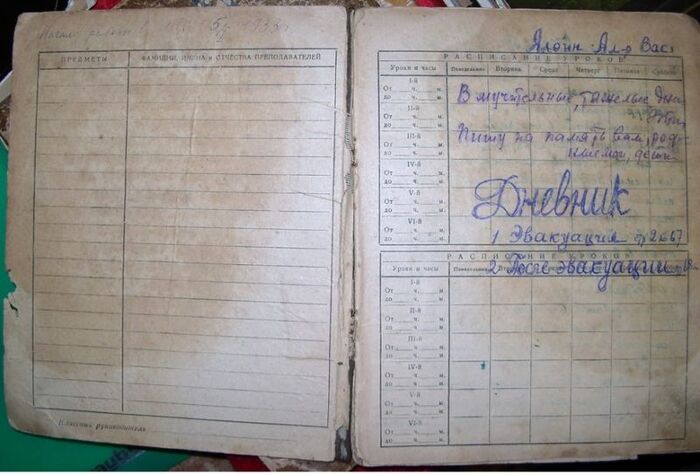 ПРЕДМЕТЫ
ФАМИЛИИ, ИМЕНА и ОТЧЕСТВА ПРЕПОДАВАТЕЛЕЙ
Классный руководитель
Ал-р Вас.
РАСПИСАНИЕ УРОКОВ
Уроки и часы Понедельник Вторник Среда Четверг Пятница Суббота
I-й
От ч. м.
до ч. м.
II-й
От ч. м.
до ч. м.
III-й
От ч. м.
до ч. м.
IV-й
От ч. м.
до ч. м.
V-й
От ч. м.
до ч. м.
VI-й
От ч. м.
до ч. м.
В мучительные, тяжелые дни
Пишу на память вам, род-
дети
Дневник
1 Эвакуация
РАСПИСАНИЕ УРОКОВ
Уроки и часы Понедельник
2 После эвакуации
I-й
От ч. м.
до ч. м.
II-й
От ч. м.
до ч. м.
III-й
От ч. м.
до ч. м.
IV-й
От ч. м.
до ч. м.
V-й
От ч. м.
до ч. м.
VI-й
От ч. м.
до ч. м.